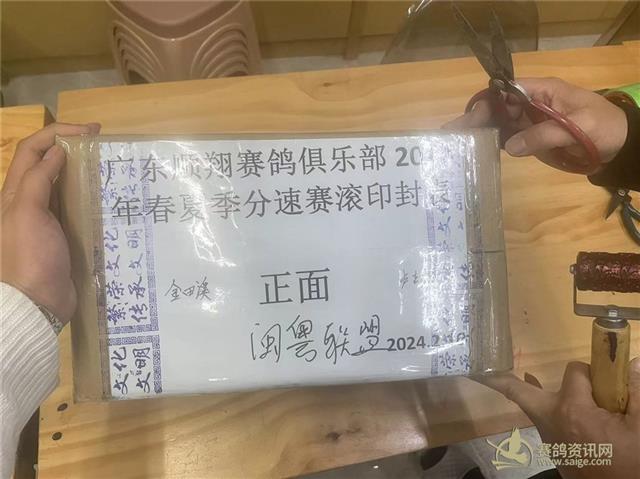 广东顺翔赛鸽俱乐部20
年春夏季分速赛滚印封
正面
金田溪
闽粤联盟 2024.2
繁荣文化
传承文明
文化
文明
赛鸽资讯网
www.saige.com